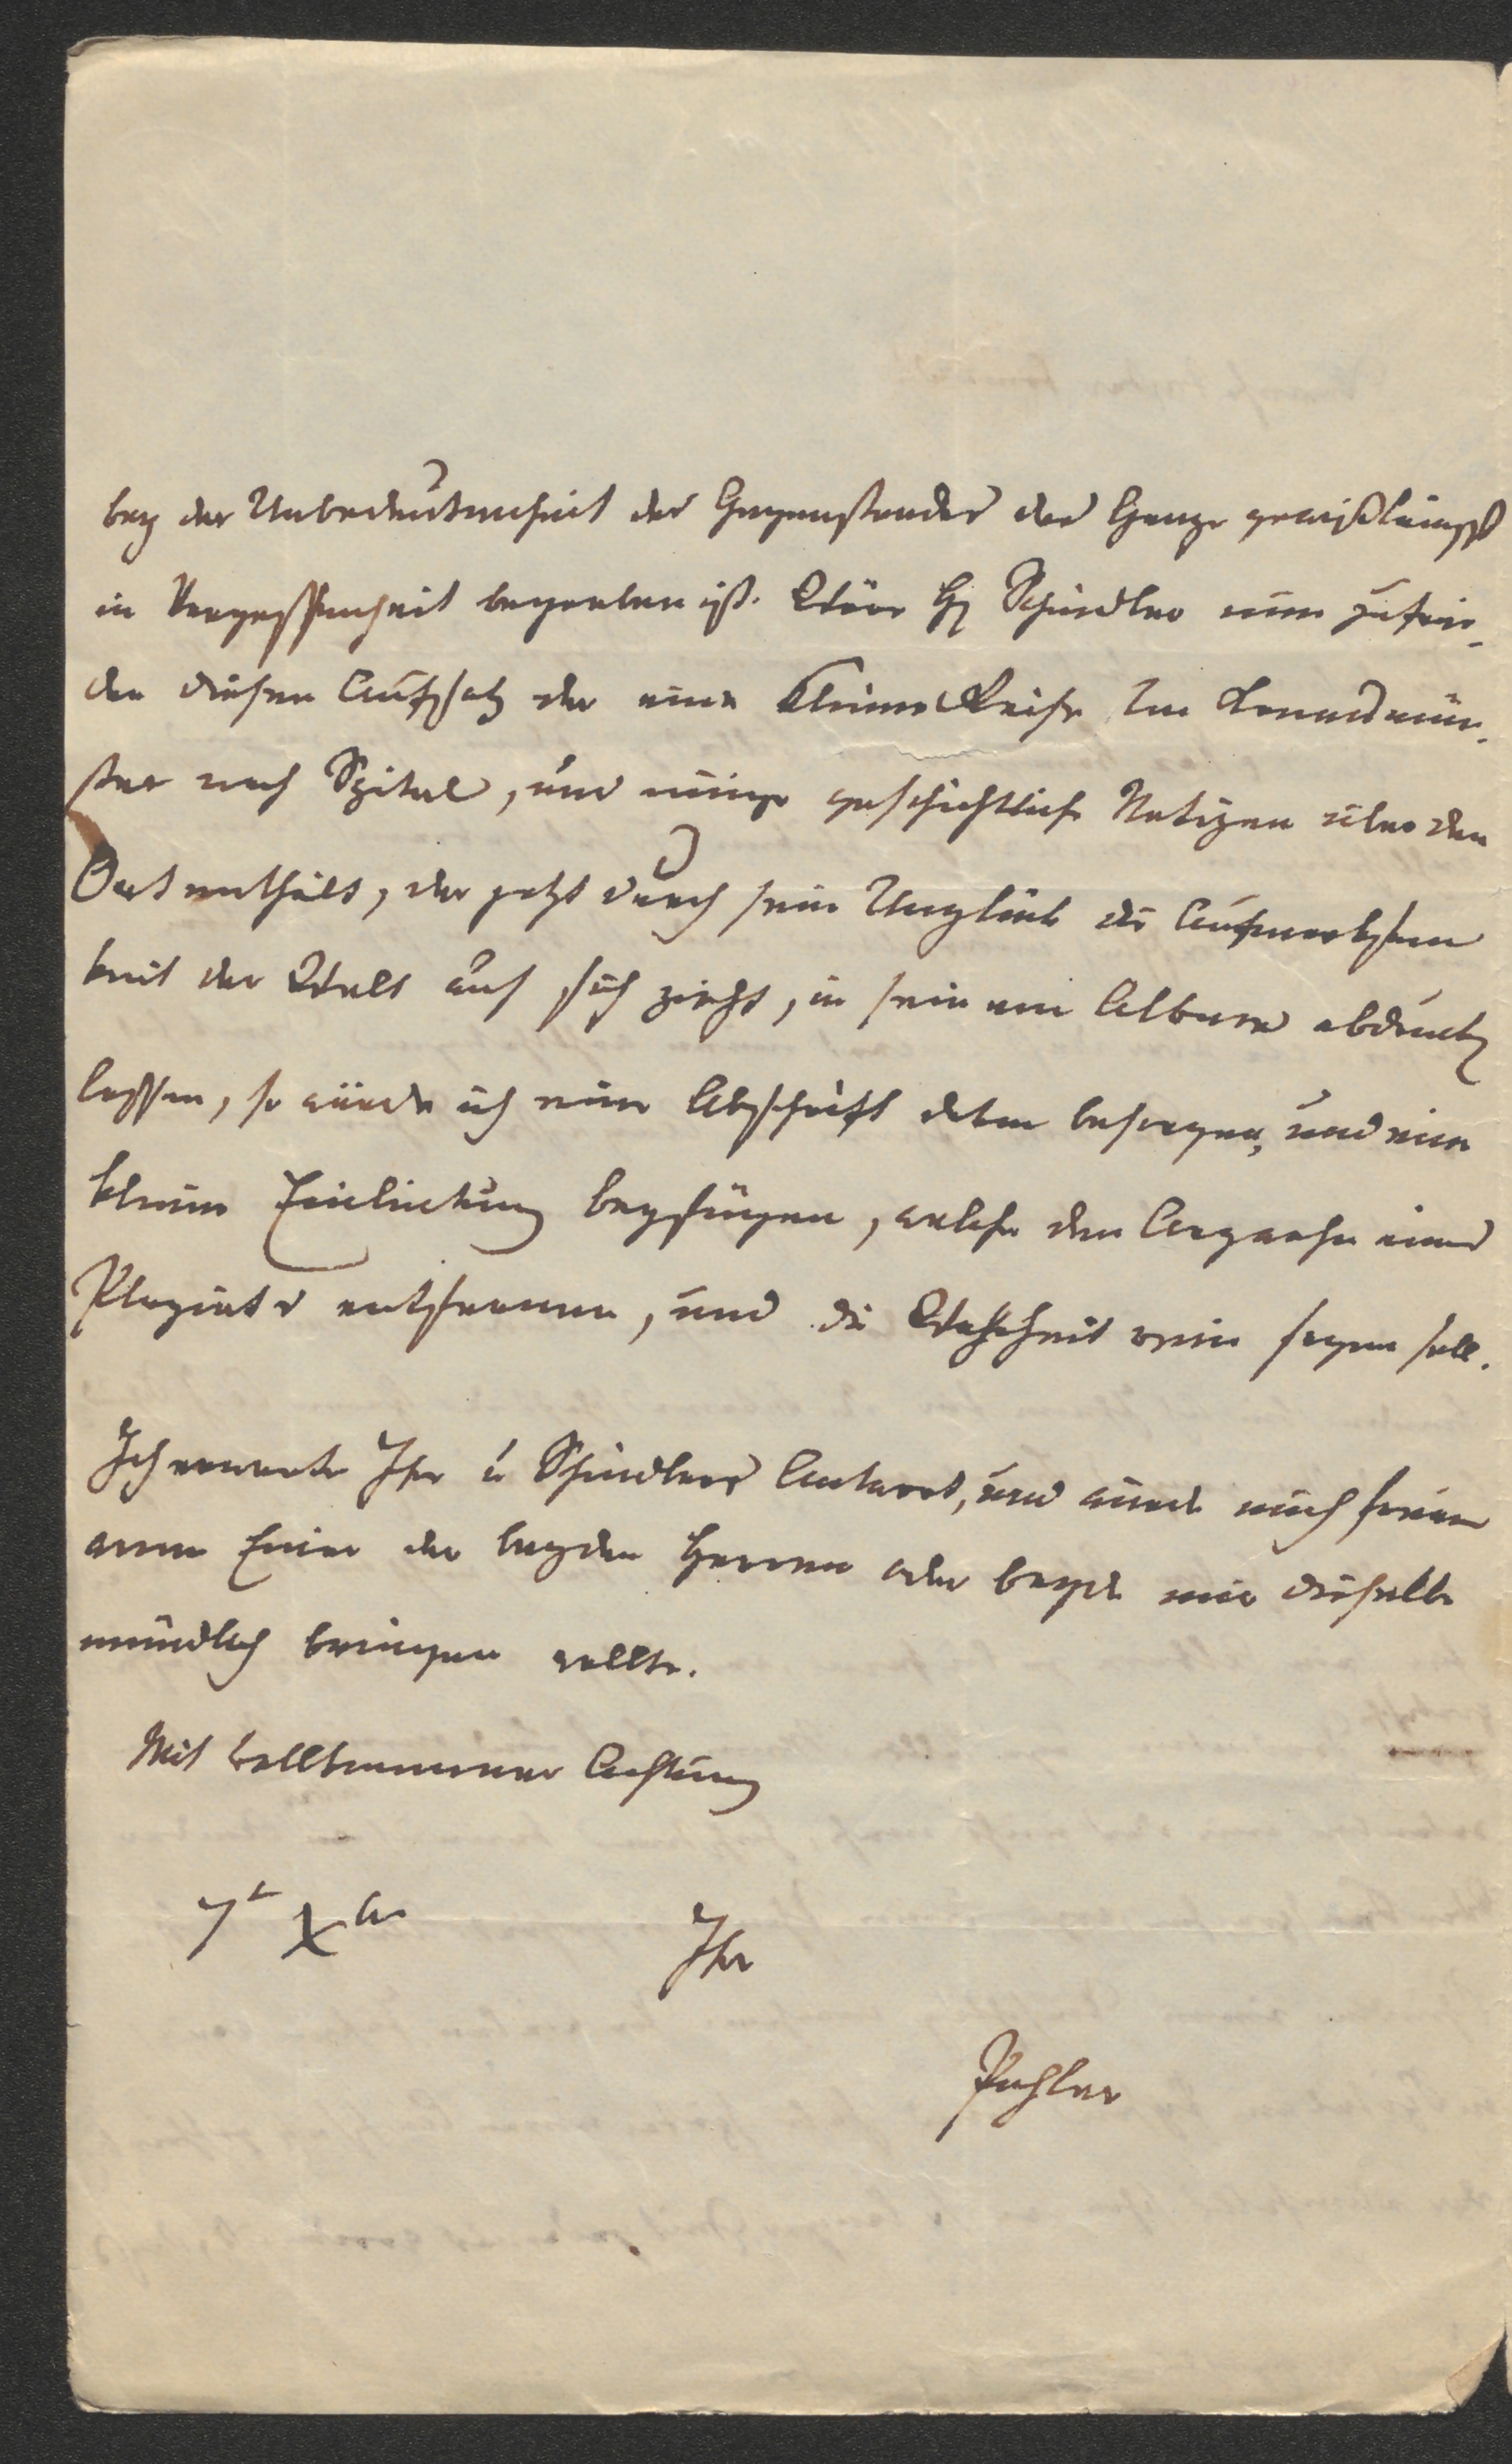 bey der Unbedeutenheit des Gegenstandes das Ganze gewißlängst
in Vergessenheit begraben ist. Wäre H Schindler nun zufrie-
den diesen Aufsatz der eine Kleine Reise von Kremsmün-
ster nach Spital, und einige geschichtliche Notizen über den
Ort enthält, der jetzt durch sein Unglück die Aufmerksam
keit der Welt auf sich zieht, in sein Album abdrucken
lassen, so würde ich eine Abschrift davon besorgen, und eine
kleine Einleitung beyfügen, welche den Argwohn eines
Plagiats entfernen, und die Wahrheit sagen soll.
Ich erwarte Ihre u Schindlers Antwort, und würde mich freuen
wenn Einer der beyden Herren oder beyde mir dieselbe
mündlich bringen wollte.
Mit vollkommener Achtung
7t Xbr
Ihr
Pachler